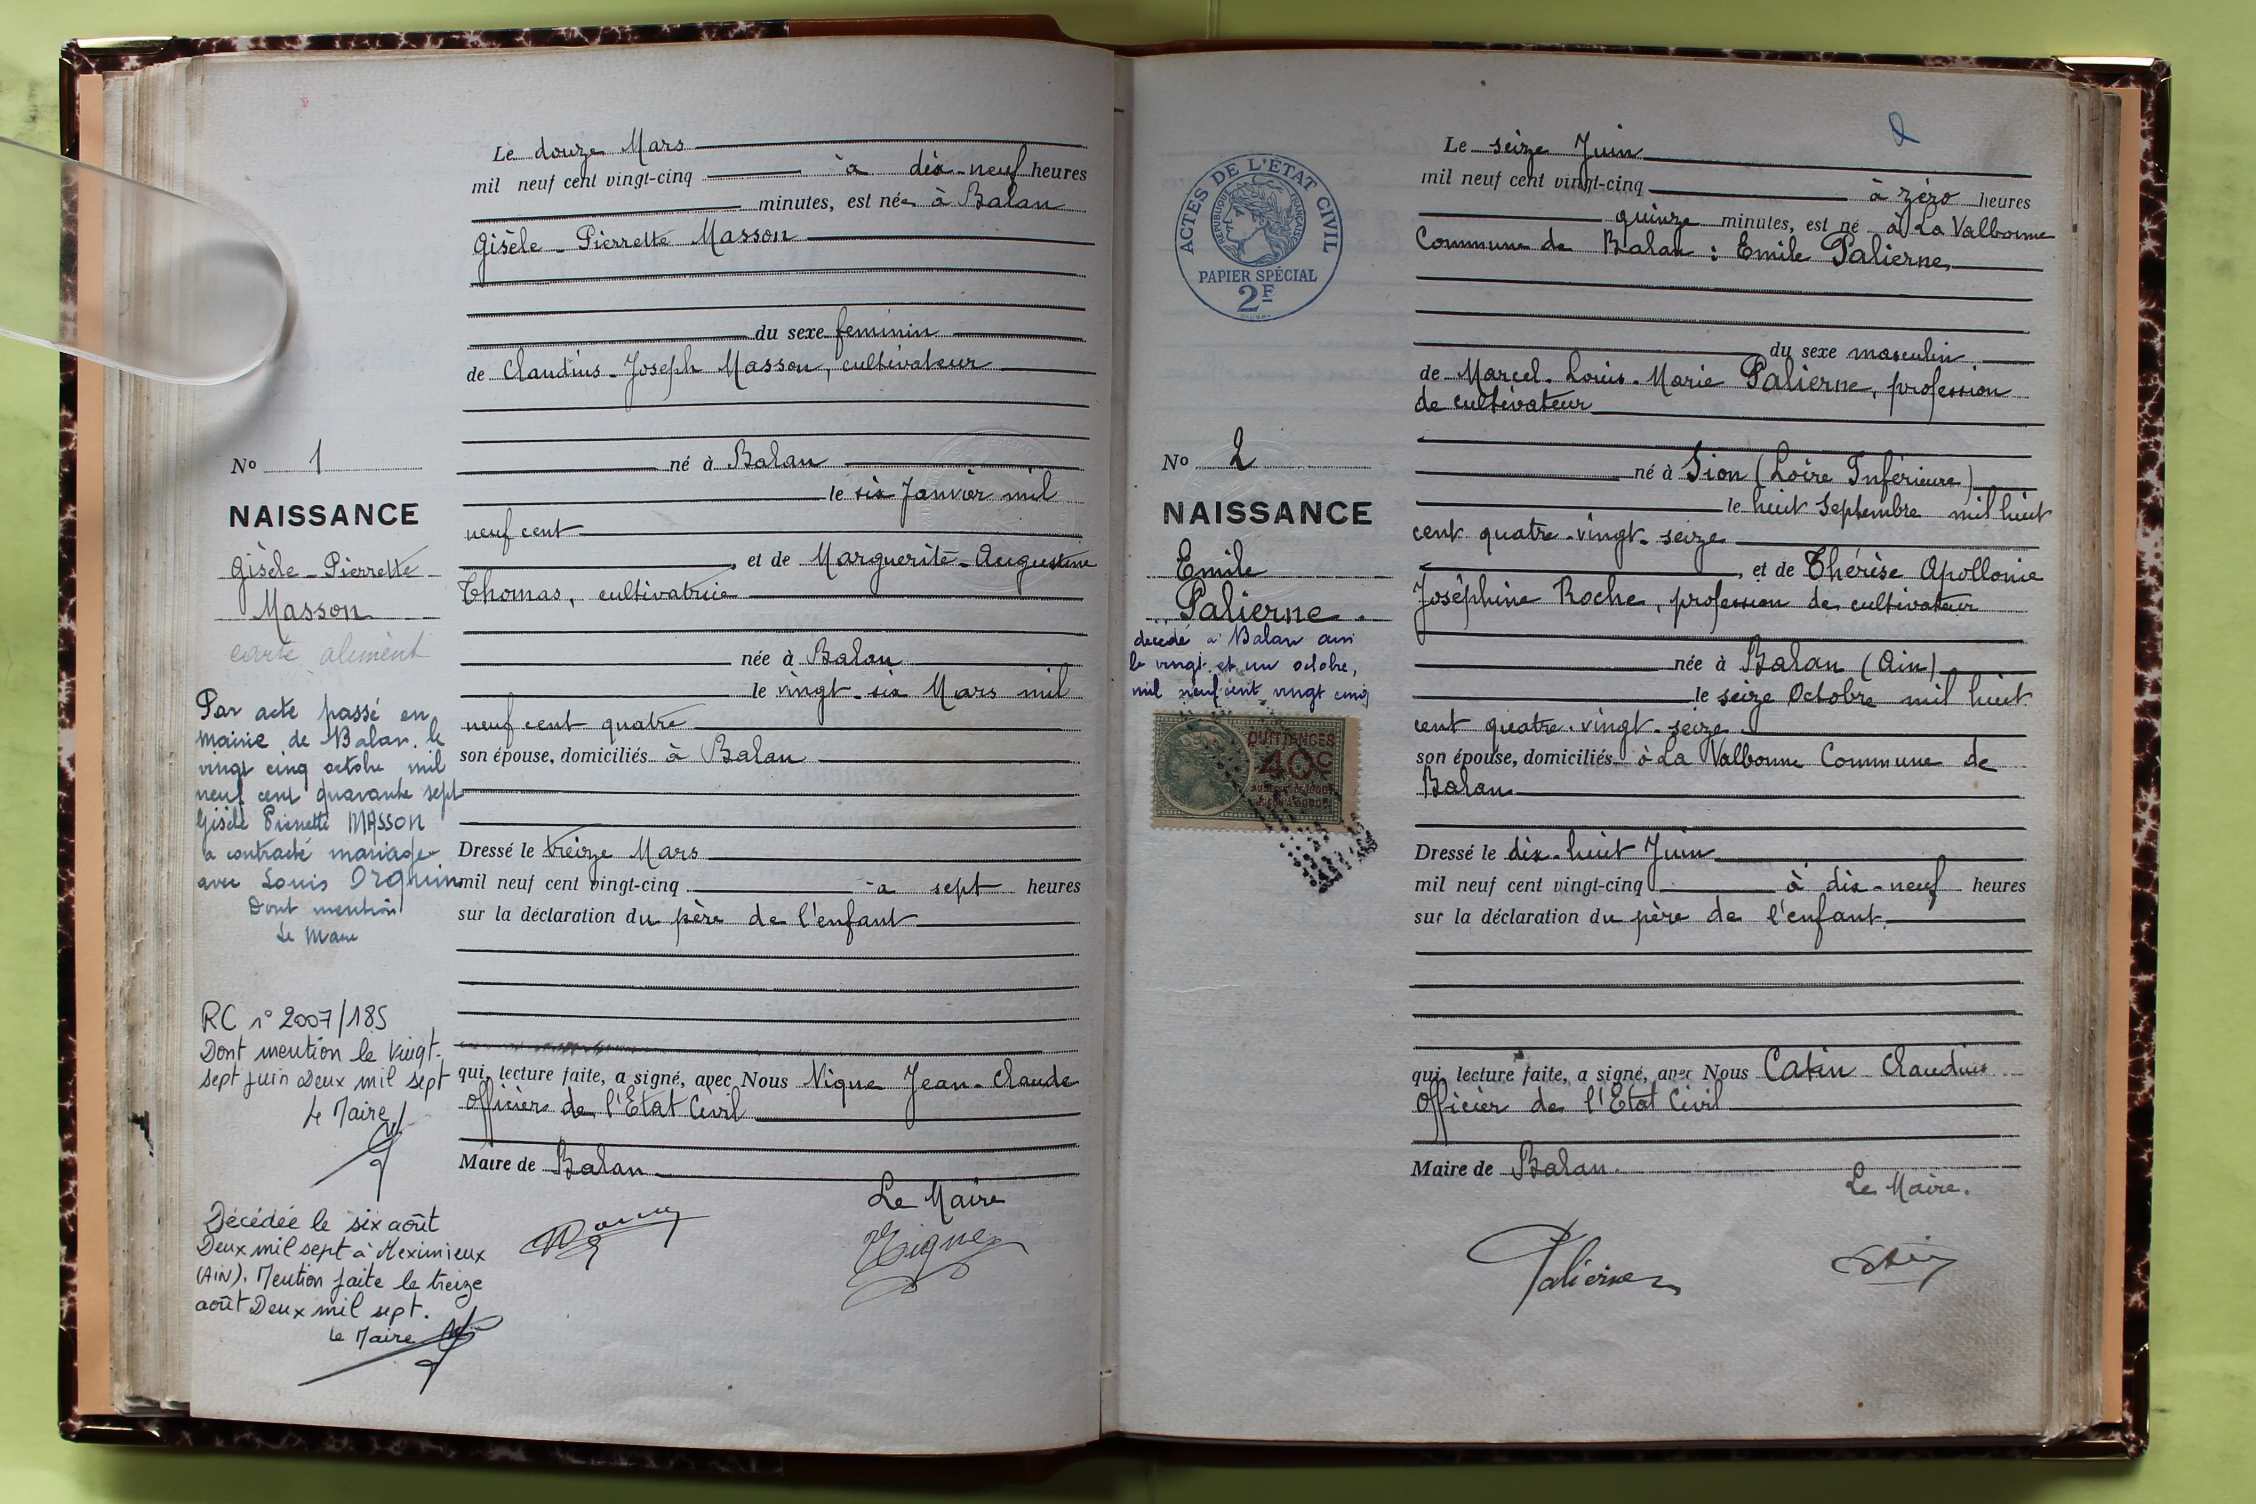 Le douze Mars
mil neuf cent vingt-cinq à dix-neuf heures
minutes, est née à Balan
Gisèle - Pierrette Masson
du sexe feminin
de Claudius - Joseph Masson, cultivateur
né à Balan
le six Janvier mil
neuf cent
, et de Marguerite - Augustine
Thomas, cultivatrice
née à Balan
le vingt-six Mars mil
neuf cent quatre
son épouse, domiciliés à Balan
Dressé le treize Mars
mil neuf cent vingt-cinq à sept heures
sur la déclaration du père de l'enfant
qui, lecture faite, a signé, avec Nous Vigne Jean-Claude
Officier de l'Etat Civil
Maire de Balan
Le Maire
Vigne
No 1
NAISSANCE
Gisèle - Pierrette
Masson
carte aliment
Par acte passé en
Mairie de Balan. le
vingt cinq octobre mil
neuf cent quarante sept
Gisèle Pierrette MASSON
a contracté mariage
avec Louis Orquin
Dont mention
Le Maire
RC n° 2007/185
Dont mention le vingt-
sept juin Deux mil sept
Le Maire
Décédée le six août
Deux mil sept à Meximieux
(AIN). Mention faite le treize
août Deux mil sept.
Le Maire
2
ACTES DE L'ÉTAT CIVIL
RÉPUBLIQUE FRANÇAISE
PAPIER SPÉCIAL
2F
Le seize Juin
mil neuf cent vingt-cinq à zéro heures
quinze minutes, est né à La Valbonne
Commune de Balan : Emile Palierne
du sexe masculin
de Marcel - Louis - Marie Palierne, profession
de cultivateur
né à Sion (Loire Inférieure)
le huit Septembre mil huit
cent quatre-vingt-seize
, et de Thérèse Apollonie
Joséphine Roche, profession de cultivateur
née à Balan (Ain)
le seize Octobre mil huit
cent quatre-vingt-seize
son épouse, domiciliés à La Valbonne Commune de
Balan
Dressé le dix-huit Juin
mil neuf cent vingt-cinq à dix-neuf heures
sur la déclaration du père de l'enfant
qui, lecture faite, a signé, avec Nous Catin Claudius
Officier de l'Etat Civil
Maire de Balan.
Le Maire.
Palierne
No 2
NAISSANCE
Emile
Palierne
decédé à Balan ain
le vingt et un octobre,
mil neuf cent vingt cinq
QUITTANCES
40c